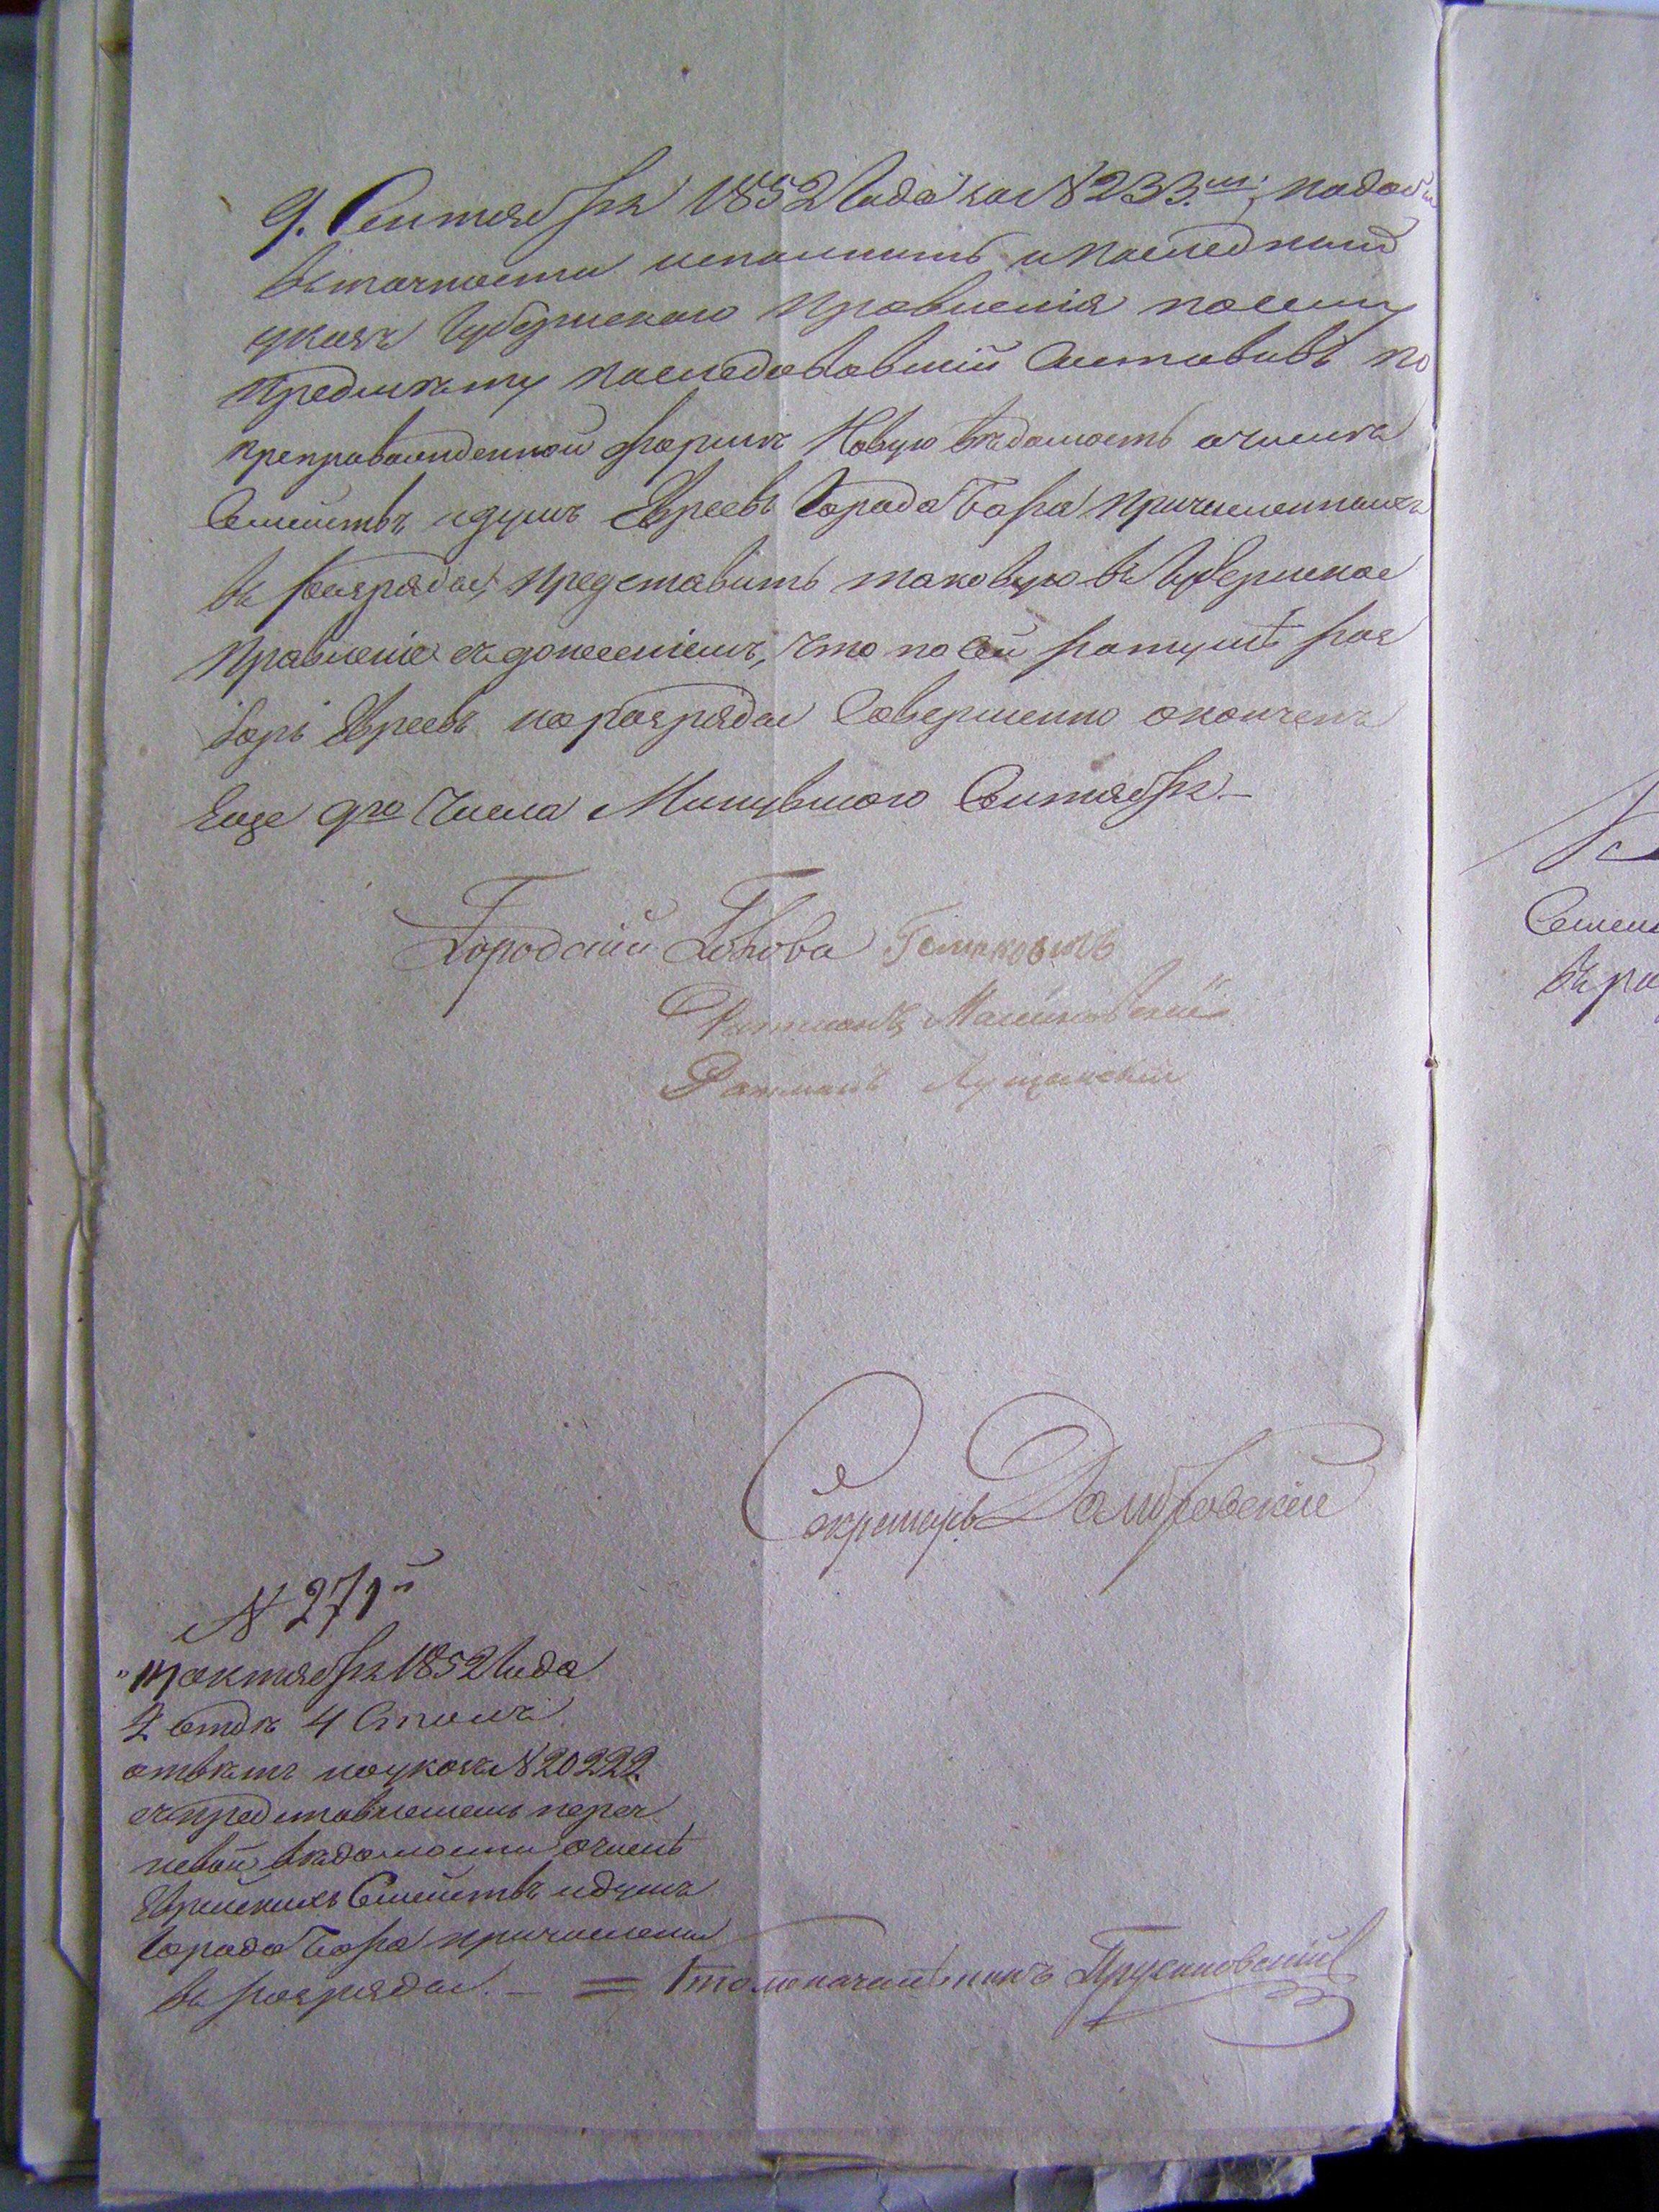 9. Сентября 1852 года за № 233.мъ, подаль
въ точности исполнить и последний
указъ Губернского Правленія посему
предмету последовавшій Составивъ по
препровожденной форме Новую ведомость о числе
Семействъ и душъ Евреевъ Города Бара причисленныхъ
въ разряды, представить таковую въ Губернское
Правленіе съ донесеніемъ, что по сей ратуше раз
боръ Евреевъ на разряды Совершенно оконченъ
Еще 9го Числа Минувшего Сентября.–
Городскій Голова
Ратманъ
Ратманъ Лущинскій
Секретарь Домбровскій
№ 271й
октября 1852 Года
2 отде 4 Столъ
ответъ на указъ № 20222
съ представленіемъ переч
невой ведомости о числе
Еврейскихъ Семействъ и душъ
Города Бара причислен
въ разряды. – = Столоначальникъ Прусиновскій
Семей
въ ра